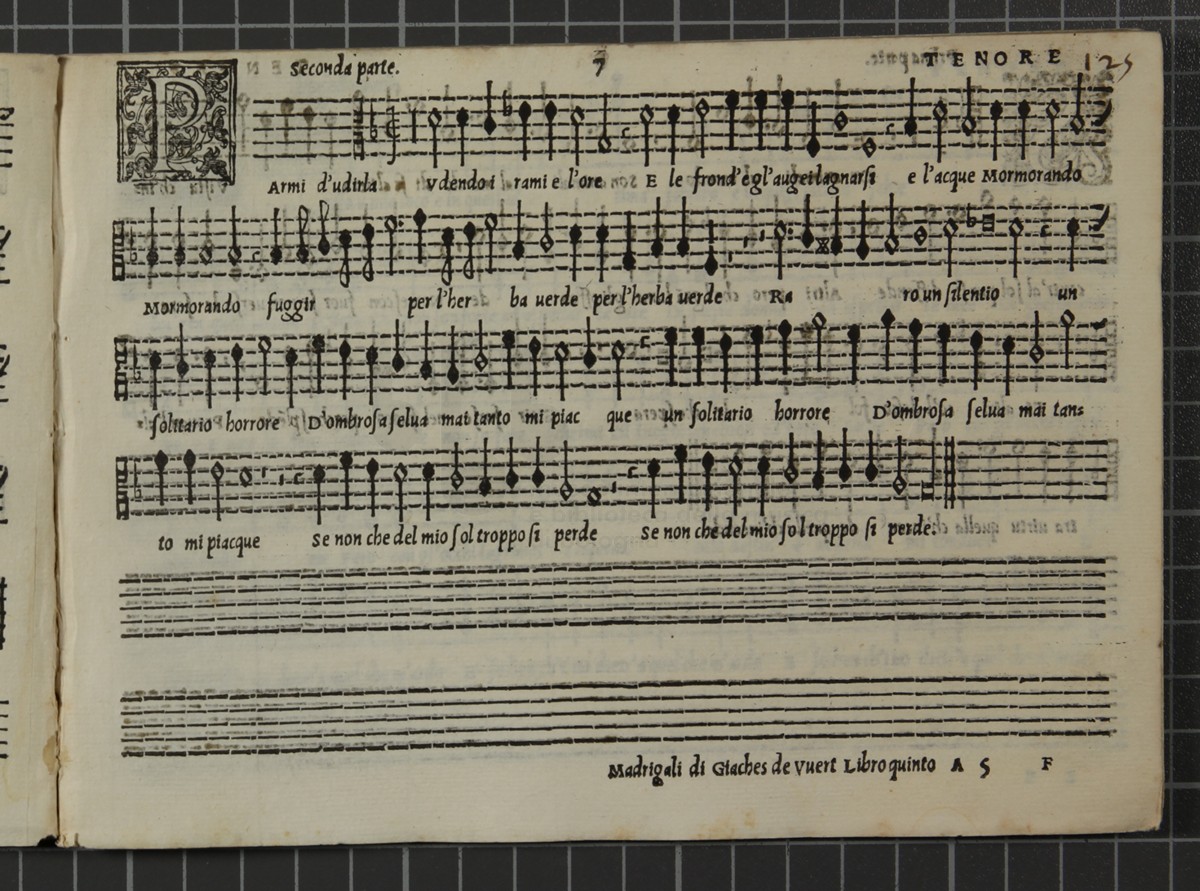 Seconda parte. 7 TENORE 125
PArmi d'udirla vdendo i rami e l'ore E le frond'e gl'augei lagnarsi e l'acque Mormorando
Mormorando fuggir per l'her ba uerde per l'herba uerde Ra ro un silentio un
solitario horrore D'ombrosa selua mai tanto mi piac que un solitario horrore D'ombrosa selua mai tan=
to mi piacque Se non che del mio sol troppo si perde Se non che del mio sol troppo si perde.
Madrigali di Giaches de Vuert Libro quinto A 5 F